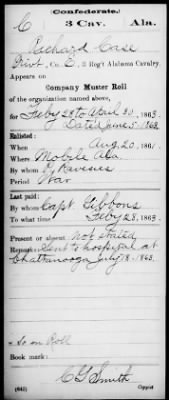 Confederate.
C 3 Cav. Ala.
Richard Case
Privt, Co. E, 3 Reg't Alabama Cavalry.
Appears on
Company Muster Roll
of the organization named above,
for Feby 28 to April 30, 1863.
Dated June 5 1863
Enlisted:
When Aug. 20, 1861.
Where Mobile Ala.
By whom
Period War
Last paid:
By whom Capt Gibbons
To what time Feby 28, 1863.
Present or absent Not stated
Remarks: Sent to hospital at
Chattanooga July 18, 1863.
* So on Roll
Book mark:
(642) C G Smith
Copyist